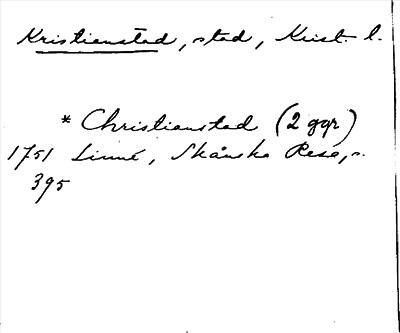 Kristianstad, stad, Krist. l.
* Christianstad (2 ggr)
1751 Linné, Skånska Resa, s.
395